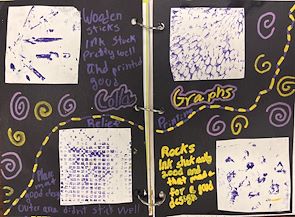 Wooden
sticks
Ink stuck
pretty well
and printed
good
Colla
Graphs
Relief
Printing
Rocks
Ink stuck
good and
that made
for a good
design
good
Outer area didn't stick well